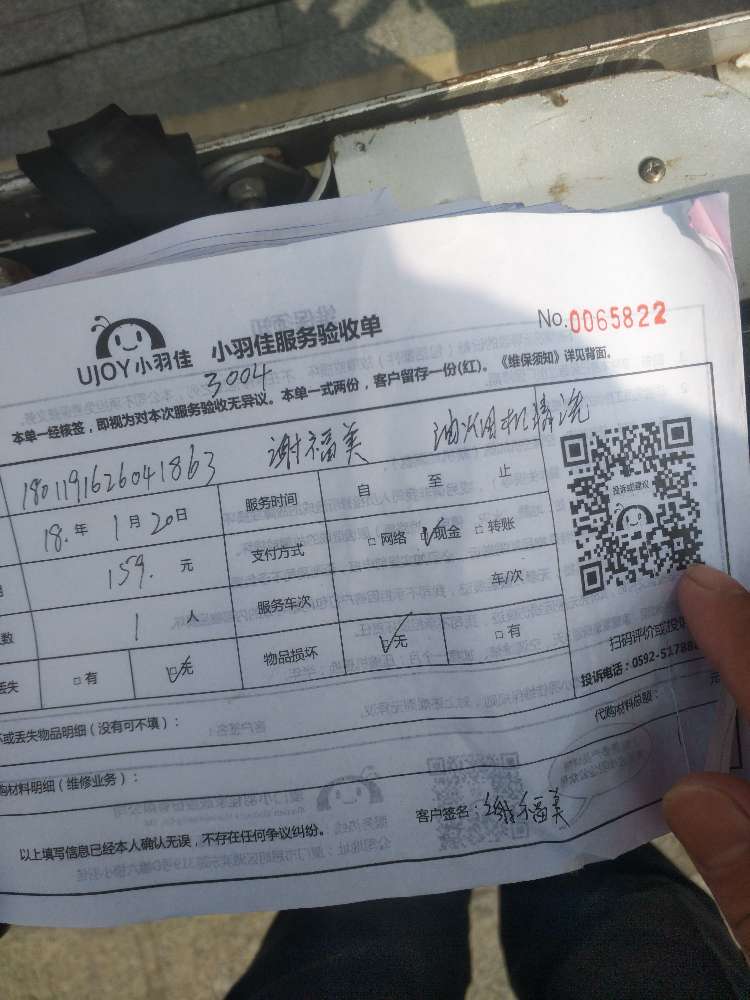 UJOY小羽佳 小羽佳服务验收单 No.0065822
3004
本单一经核签，即视为对本次服务验收无异议。本单一式两份，客户留存一份(红)。《维保须知》详见背面。
1801191626041863 谢福美 油烟机清洗
18.年 1月20日 服务时间 自 至 止
159. 元 支付方式 □网络 ☑现金 □转账
数 1 人 服务车次 车/次
丢失 □有 ☑无 物品损坏 ☑无 □有
投诉或建议
扫码评价或投
投诉电话：0592-51788
坏或丢失物品明细（没有可不填）：
代购材料总额： 元
购材料明细（维修业务）：
以上填写信息已经本人确认无误，不存在任何争议纠纷。
客户签名：谢福美